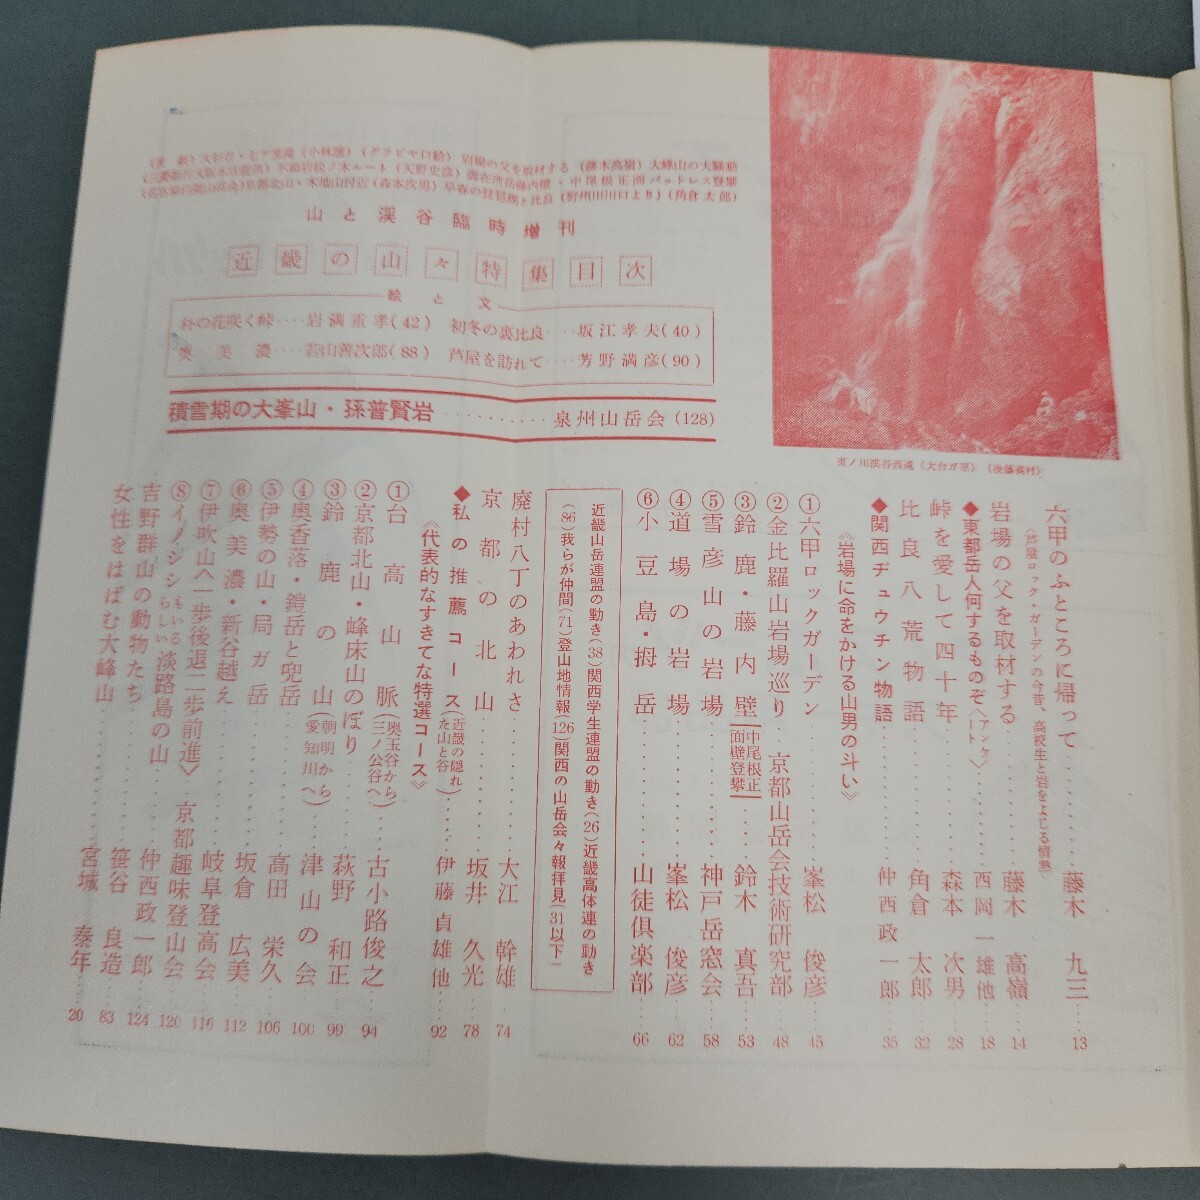 (グラビヤ口絵) 岩場の父を取材する (藤木高嶺) 大峰山の大騒動
山と渓谷臨時増刊
近畿の山々特集目次
絵と文
初冬の裏比良‥‥坂江孝夫(40)
芦屋を訪れて‥‥芳野満彦(90)
奥美濃‥‥若山善次郎(88)
積雪期の大峯山・孫普賢岩‥‥‥‥泉州山岳会(128)
東ノ川渓谷西滝 (大台ガ原)
六甲のふところに帰って‥‥‥藤木九三‥13
岩場の父を取材する‥‥‥藤木高嶺‥14
◆東都岳人何するものぞ〈アンケート〉‥‥西岡一雄他‥18
峠を愛して四十年‥‥‥森本次男‥28
比良八荒物語‥‥‥角倉太郎‥32
◆関西ヂュウチン物語‥‥‥仲西政一郎‥35
《岩場に命をかける山男の斗い》
①六甲ロックガーデン‥‥‥峯松俊彦‥45
②金比羅山岩場巡り‥京都山岳会技術研究部‥48
③鈴鹿・藤内壁[中尾根正面壁登攀]‥‥鈴木真吾‥53
⑤雪彦山の岩場‥‥‥神戸岳窓会‥58
④道場の岩場‥‥‥峯松俊彦‥62
⑥小豆島・拇岳‥‥‥山徒倶楽部‥66
近畿山岳連盟の動き(38)関西学生連盟の動き(26)近畿高体連の動き
(86)我らが仲間(71)登山地情報(126)関西の山岳会々報拝見(31以下)
廃村八丁のあわれさ‥‥‥大江幹雄‥74
京都の北山‥‥‥坂井久光‥78
◆私の推薦コース(近畿の隠れた山と谷)‥‥伊藤貞雄他‥92
《代表的なすきてな特選コース》
①台高山脈(奥玉谷から三ノ公谷へ)‥‥古小路俊之‥94
②京都北山・峰床山のぼり‥‥‥萩野和正‥99
③鈴鹿の山(朝明から愛知川へ)‥‥津山の会‥100
④奥香落・鎧岳と兜岳‥‥‥高田栄久‥106
⑤伊勢の山・局ガ岳‥‥‥坂倉広美‥112
⑥奥美濃・新谷越え‥‥‥岐阜登高会‥116
⑦伊吹山へ一歩後退二歩前進〉‥京都趣味登山会‥120
⑧イノシシもいるらしい淡路島の山‥‥仲西政一郎‥124
吉野群山の動物たち‥‥‥笹谷良造‥83
女性をはばむ大峰山‥‥‥宮城泰年‥20